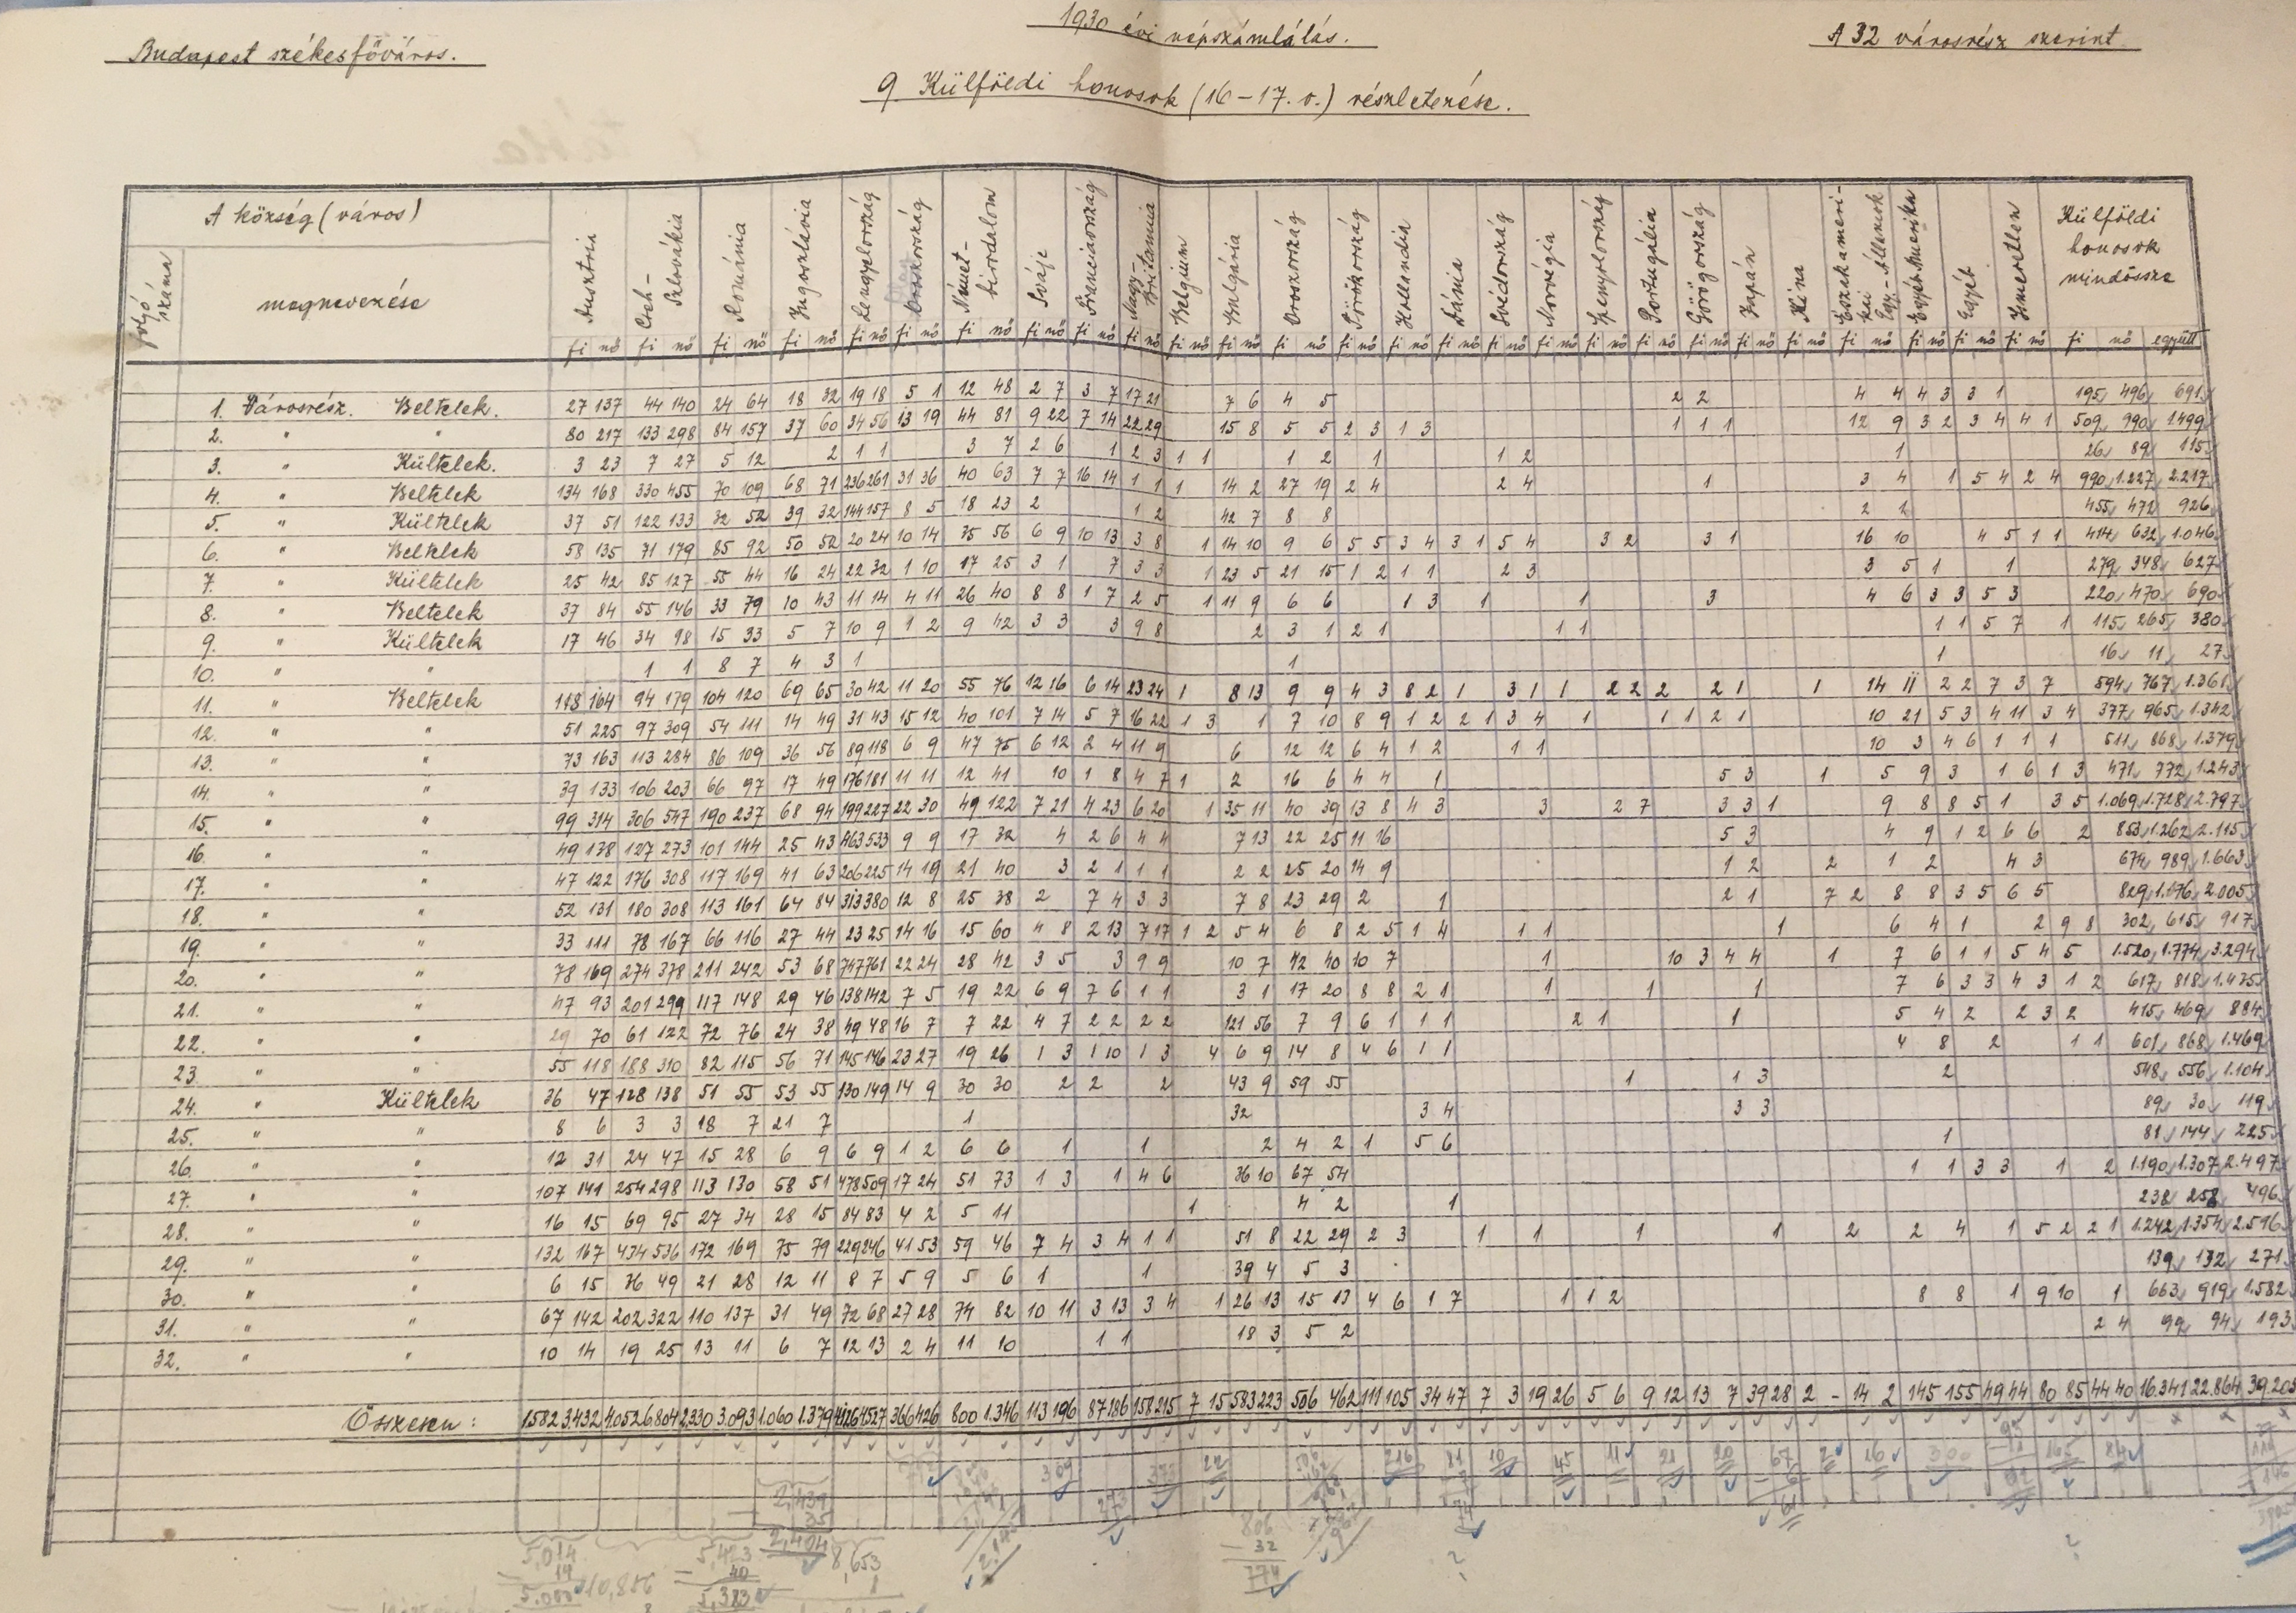 Budapest székesfőváros.
1930 évi népszámlálás.
A 32 városrész szerint
9 Külföldi honosok (16-17. r.) részletezése.
A község (város)
folyó száma
megnevezése
Ausztria
Cseh-Szlovákia
Románia
Jugoszlávia
Lengyelország
Oroszország
Német-birodalom
Svájc
Franciaország
Nagy-Britannia
Belgium
Bulgária
Oroszország
Törökország
Hollandia
Dánia
Svédország
Norvégia
Spanyolország
Portugália
Görögország
Japán
Kína
Északamerikai Egy. Államok
Egyéb Amerika
Egyéb
Ismeretlen
Külföldi honosok mindössze
fi nő együtt
1. Városrész. Beltelek. 27 137 44 140 24 64 18 32 19 18 5 1 12 48 2 7 3 7 17 21 7 6 4 5 2 2 4 4 4 3 3 1 195 496 691
2. " " 80 217 133 298 84 157 37 60 34 56 13 19 44 81 9 22 7 14 22 29 15 8 5 5 2 3 1 3 1 1 1 12 9 3 2 3 4 4 1 509 990 1499
3. " Kültelek. 3 23 7 27 5 12 2 1 1 3 7 2 6 1 2 3 1 1 1 2 1 1 2 1 26 89 115
4. " Beltelek 134 168 330 455 70 109 68 71 236 261 31 36 40 63 7 7 16 14 1 1 1 14 2 27 19 2 4 2 4 1 3 4 1 5 4 2 4 990 1.227 2.217
5. " Kültelek 37 51 122 133 32 52 39 32 144 157 8 5 18 23 2 1 2 42 7 8 8 2 1 455 472 926
6. " Beltelek 58 135 71 179 85 92 50 52 20 24 10 14 35 56 6 9 10 13 3 8 1 14 10 9 6 5 5 3 4 3 1 5 4 3 2 3 1 16 10 4 5 1 1 414 632 1.046
7. " Kültelek 25 42 85 127 55 44 16 24 22 32 1 10 17 25 3 1 7 3 3 1 23 5 21 15 1 2 1 1 2 3 3 5 1 1 279 348 627
8. " Beltelek 37 84 55 146 33 79 10 43 11 14 4 11 26 40 8 8 1 7 2 5 1 11 9 6 6 1 3 1 1 3 4 6 3 3 5 3 220 470 690
9. " Kültelek 17 46 34 98 15 33 5 7 10 9 1 2 9 42 3 3 3 9 8 2 3 1 2 1 1 1 1 1 5 7 1 115 265 380
10. " " 1 1 8 7 4 3 1 1 1 16 11 27
11. " Beltelek 118 164 94 179 104 120 69 65 30 42 11 20 55 76 12 16 6 14 23 24 1 8 13 9 9 4 3 8 2 1 3 1 1 2 2 2 2 1 1 14 11 2 2 7 3 7 594 767 1.361
12. " " 51 225 97 309 54 111 14 49 31 43 15 12 40 101 7 14 5 7 16 22 1 3 1 7 10 8 9 1 2 2 1 3 4 1 1 1 2 1 10 21 5 3 4 11 3 4 377 965 1.342
13. " " 73 163 113 284 86 109 36 56 89 118 6 9 47 75 6 12 2 4 11 9 6 12 12 6 4 1 2 1 1 10 3 4 6 1 1 1 511 868 1.379
14. " " 39 133 106 203 66 97 17 49 176 181 11 11 12 41 10 1 8 4 7 1 2 16 6 4 4 1 5 3 1 5 9 3 1 6 1 3 471 772 1.243
15. " " 99 314 306 547 190 237 68 94 199 227 22 30 49 122 7 21 4 23 6 20 1 35 11 40 39 13 8 4 3 3 2 7 3 3 1 9 8 8 5 1 3 5 1.069 1.728 2.797
16. " " 49 138 127 273 101 144 25 43 463 533 9 9 17 32 4 2 6 4 4 7 13 22 25 11 16 5 3 4 9 1 2 6 6 2 853 1.262 2.115
17. " " 47 122 176 308 117 169 41 63 206 225 14 19 21 40 3 2 1 1 1 2 2 25 20 14 9 1 2 2 1 2 4 3 674 989 1.663
18. " " 52 131 180 308 113 161 64 84 313 380 12 8 25 38 2 7 4 3 3 7 8 23 29 2 1 2 1 7 2 8 8 3 5 6 5 829 1.176 2.005
19. " " 33 111 78 167 66 116 27 44 23 25 14 16 15 60 4 8 2 13 7 17 1 2 5 4 6 8 2 5 1 4 1 1 1 6 4 1 2 9 8 302 615 917
20. " " 78 169 274 378 211 242 53 68 747 761 22 24 28 42 3 5 3 9 9 10 7 42 40 10 7 1 10 3 4 4 1 7 6 1 1 5 4 5 1.520 1.774 3.294
21. " " 47 93 201 299 117 148 29 46 138 142 7 5 19 22 6 9 7 6 1 1 3 1 17 20 8 8 2 1 1 1 1 7 6 3 3 4 3 1 2 617 818 1.435
22. " " 29 70 61 122 72 76 24 38 49 48 16 7 7 22 4 7 2 2 2 2 121 56 7 9 6 1 1 1 2 1 1 5 4 2 2 3 2 415 469 884
23 " " 55 118 188 310 82 115 56 71 145 146 23 27 19 26 1 3 1 10 1 3 4 6 9 14 8 4 6 1 1 4 8 2 1 1 601 868 1.469
24. " Kültelek 36 47 128 138 51 55 53 55 130 149 14 9 30 30 2 2 2 43 9 59 55 1 1 3 2 548 556 1.104
25. " " 8 6 3 3 18 7 21 7 1 32 3 4 3 3 89 30 119
26. " " 12 31 24 47 15 28 6 9 6 9 1 2 6 6 1 1 2 4 2 1 5 6 1 81 144 225
27. " " 107 141 254 298 113 130 58 51 478 509 17 24 51 73 1 3 1 4 6 36 10 67 54 1 1 3 3 1 2 1.190 1.307 2.497
28. " " 16 15 69 95 27 34 28 15 84 83 4 2 5 11 1 4 2 1 238 258 496
29. " " 132 167 434 536 172 169 75 79 229 246 41 53 59 46 7 4 3 4 1 1 51 8 22 29 2 3 1 1 1 1 2 2 4 1 5 2 2 1 1.242 1.354 2.596
30. " " 6 15 36 49 21 28 12 11 8 7 5 9 5 6 1 1 39 4 5 3 139 132 271
31. " " 67 142 202 322 110 137 31 49 72 68 27 28 74 82 10 11 3 13 3 4 1 26 13 15 13 4 6 1 7 1 1 2 8 8 1 9 10 1 663 919 1.582
32. " " 10 14 19 25 13 11 6 7 12 13 2 4 11 10 1 1 18 3 5 2 2 4 99 94 193
Összesen: 1582 3.432 4052 6804 2330 3.093 1.060 1.379 4126 4527 366 426 800 1.346 113 196 87 186 158 215 7 15 583 223 506 462 111 105 34 47 7 3 19 26 5 6 9 12 13 7 39 28 2 - 14 2 145 155 49 44 80 85 44 40 16.341 22.864 39.205
309 373 22 216 81 10 45 11 21 20 67 2 16 300 93 165 84
2,439 35 2,404
293
806 - 32 774
5,014 - 14 5.000
10,856
5,423 - 40 5,383
8,653